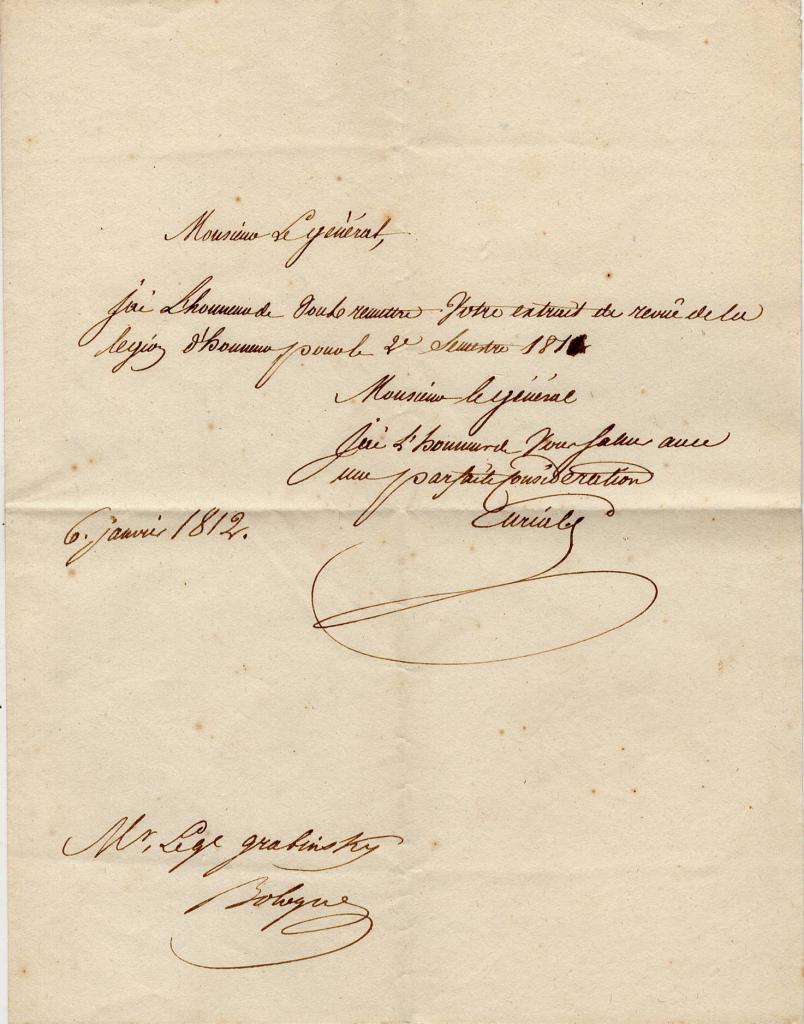 Monsieur Le général,
J'ai L'honneur de Vous remettre Votre extrait de revuë de la
légion d'honneur pour le 2e Semestre 1811
Monsieur le général
J'ai L'honneur de Vous saluer avec
une parfaite considération
6. janvier 1812.
Mr. Le gl grabinsky
Bologne